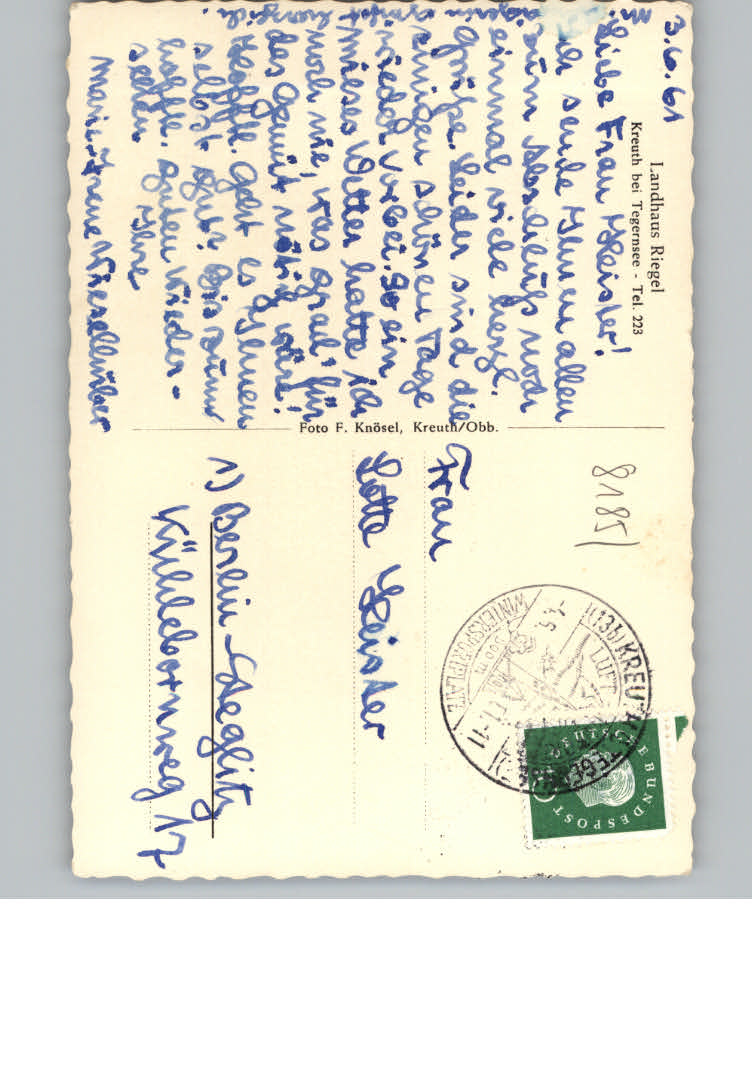 Landhaus Riegel
Kreuth bei Tegernsee - Tel. 223
3.6.61
Liebe Frau Heister!
Ich sende Ihnen allen
zum Abschluß noch
einmal viele herzl.
Grüße. Leider sind die
einigen schönen Tage
wieder vorbei. So ein
mieses Wetter hatte ich
noch nie, was grad für
das Gemüt nötig wär!
Hofftl. geht es Ihnen
selbst gut. Bis zum
hofftl. guten Wieder-
sehen Ihre
Foto F. Knösel, Kreuth/Obb.
8185/
Frau
Lotte Heister
1) Berlin-Steglitz
Kühlebornweg 17
(13b) KREUTH
LUFT
WINTERSPORTPLATZ
800 m
DEUTSCHE BUNDESPOST